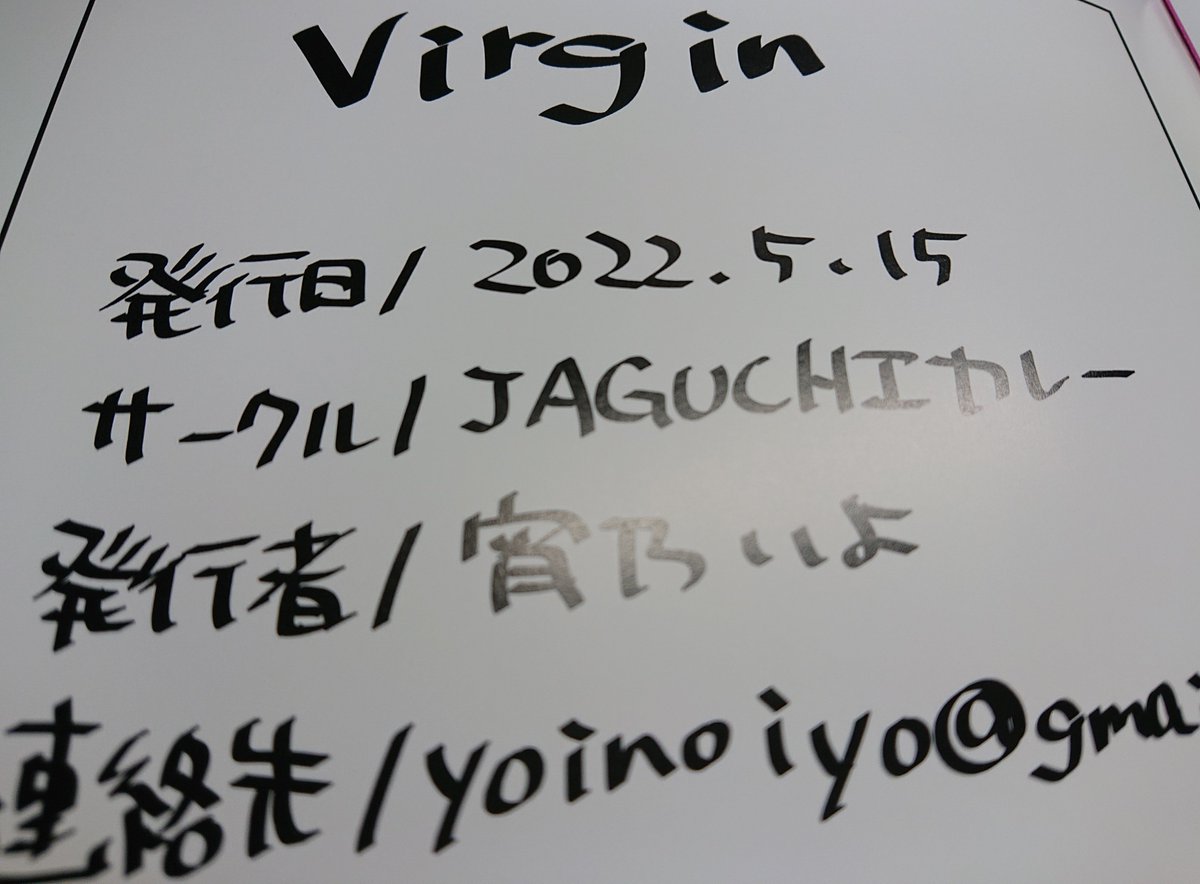 Virgin
発行日/2022.5.15
サークル/JAGUCHIカレー
発行者/宵乃いよ
連絡先/yoinoiyo@gmai